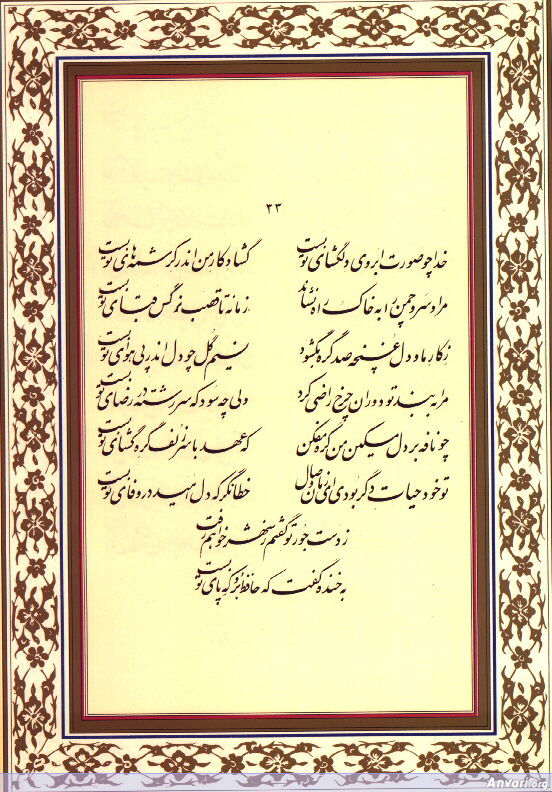 ۳۳
خدا چو صورت ابروی دلگشای تو بست گشاد کار من اندر کرشمه های تو بست
مرا و سرو چمن را به خاک راه نشاند زمانه تا قصب نرگس قبای تو بست
ز کار ما و دل غنچه صد گره بگشود نسیم گل چو دل اندر پی هوای تو بست
مرا به بند تو دوران چرخ راضی کرد ولی چه سود که سررشته در رضای تو بست
چو نافه بر دل مسکین من گره مفکن که عهد با سر زلف گره گشای تو بست
تو خود حیات دگر بودی ای زمان وصال خطا نگر که دل امید در وفای تو بست
ز دست جور تو گفتم ز شهر خواهم رفت
به خنده گفت که حافظ برو که پای تو بست
Anvari.org